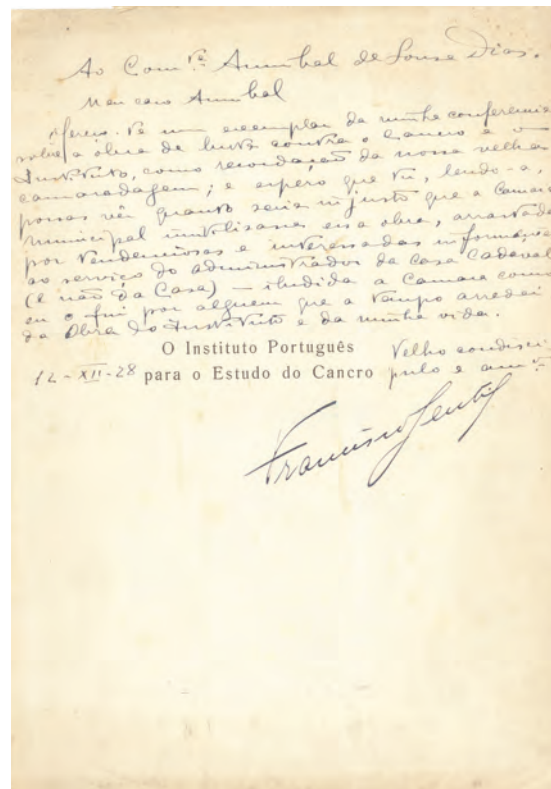 Ao Com.te Annibal de Sousa Dias.
Meu caro Annibal
Ofereço-te um exemplar da minha conferencia
sobre a obra de lucta contra o Cancro e o
Instituto, como recordação da nossa velha
camaradagem; e espero que tu, lendo-a,
possas vêr quanto seria injusto que a Camara
municipal inutilisasse essa obra, arrastada
por tendenciosas e interessadas informações
ao serviço do administrador da casa Cadaval
(e não da Casa) — iludida a Camara como
eu o fui por alguem que a tempo arredei
da Obra do Instituto e da minha vida.
O Instituto Português
para o Estudo do Cancro
12-XII-28
Velho condisci-
pulo e am.º
Francisco Gentil